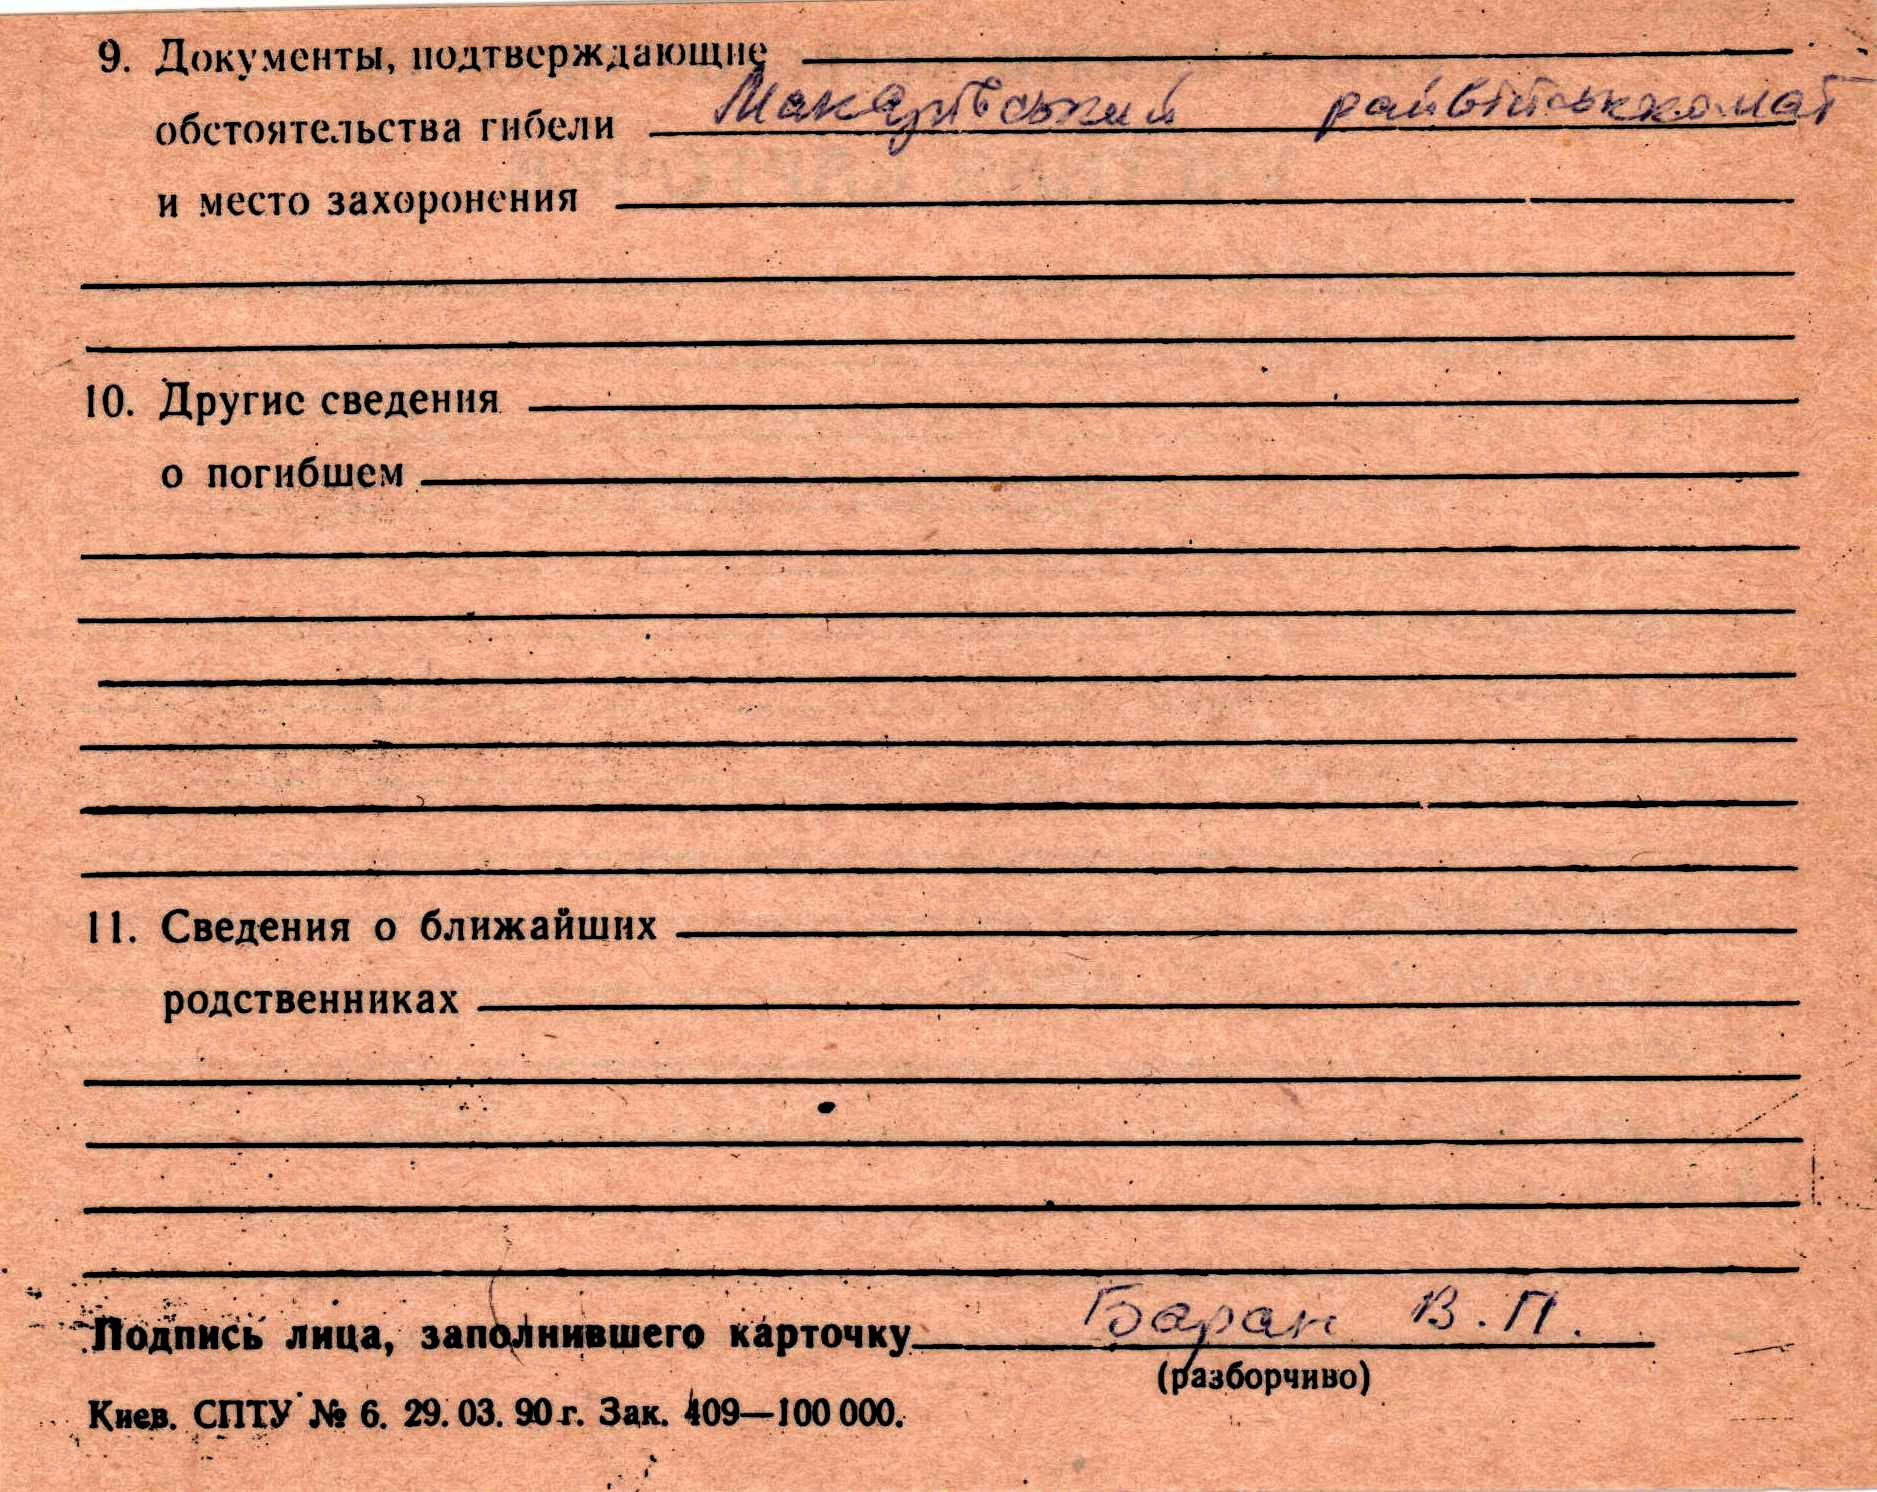 9. Документы, подтверждающие
обстоятельства гибели Макарівський райвійськкомат
и место захоронения
10. Другие сведения
о погибшем
11. Сведения о ближайших
родственниках
Подпись лица, заполнившего карточку Баран В. П.
(разборчиво)
Киев. СПТУ № 6. 29. 03. 90 г. Зак. 409—100 000.